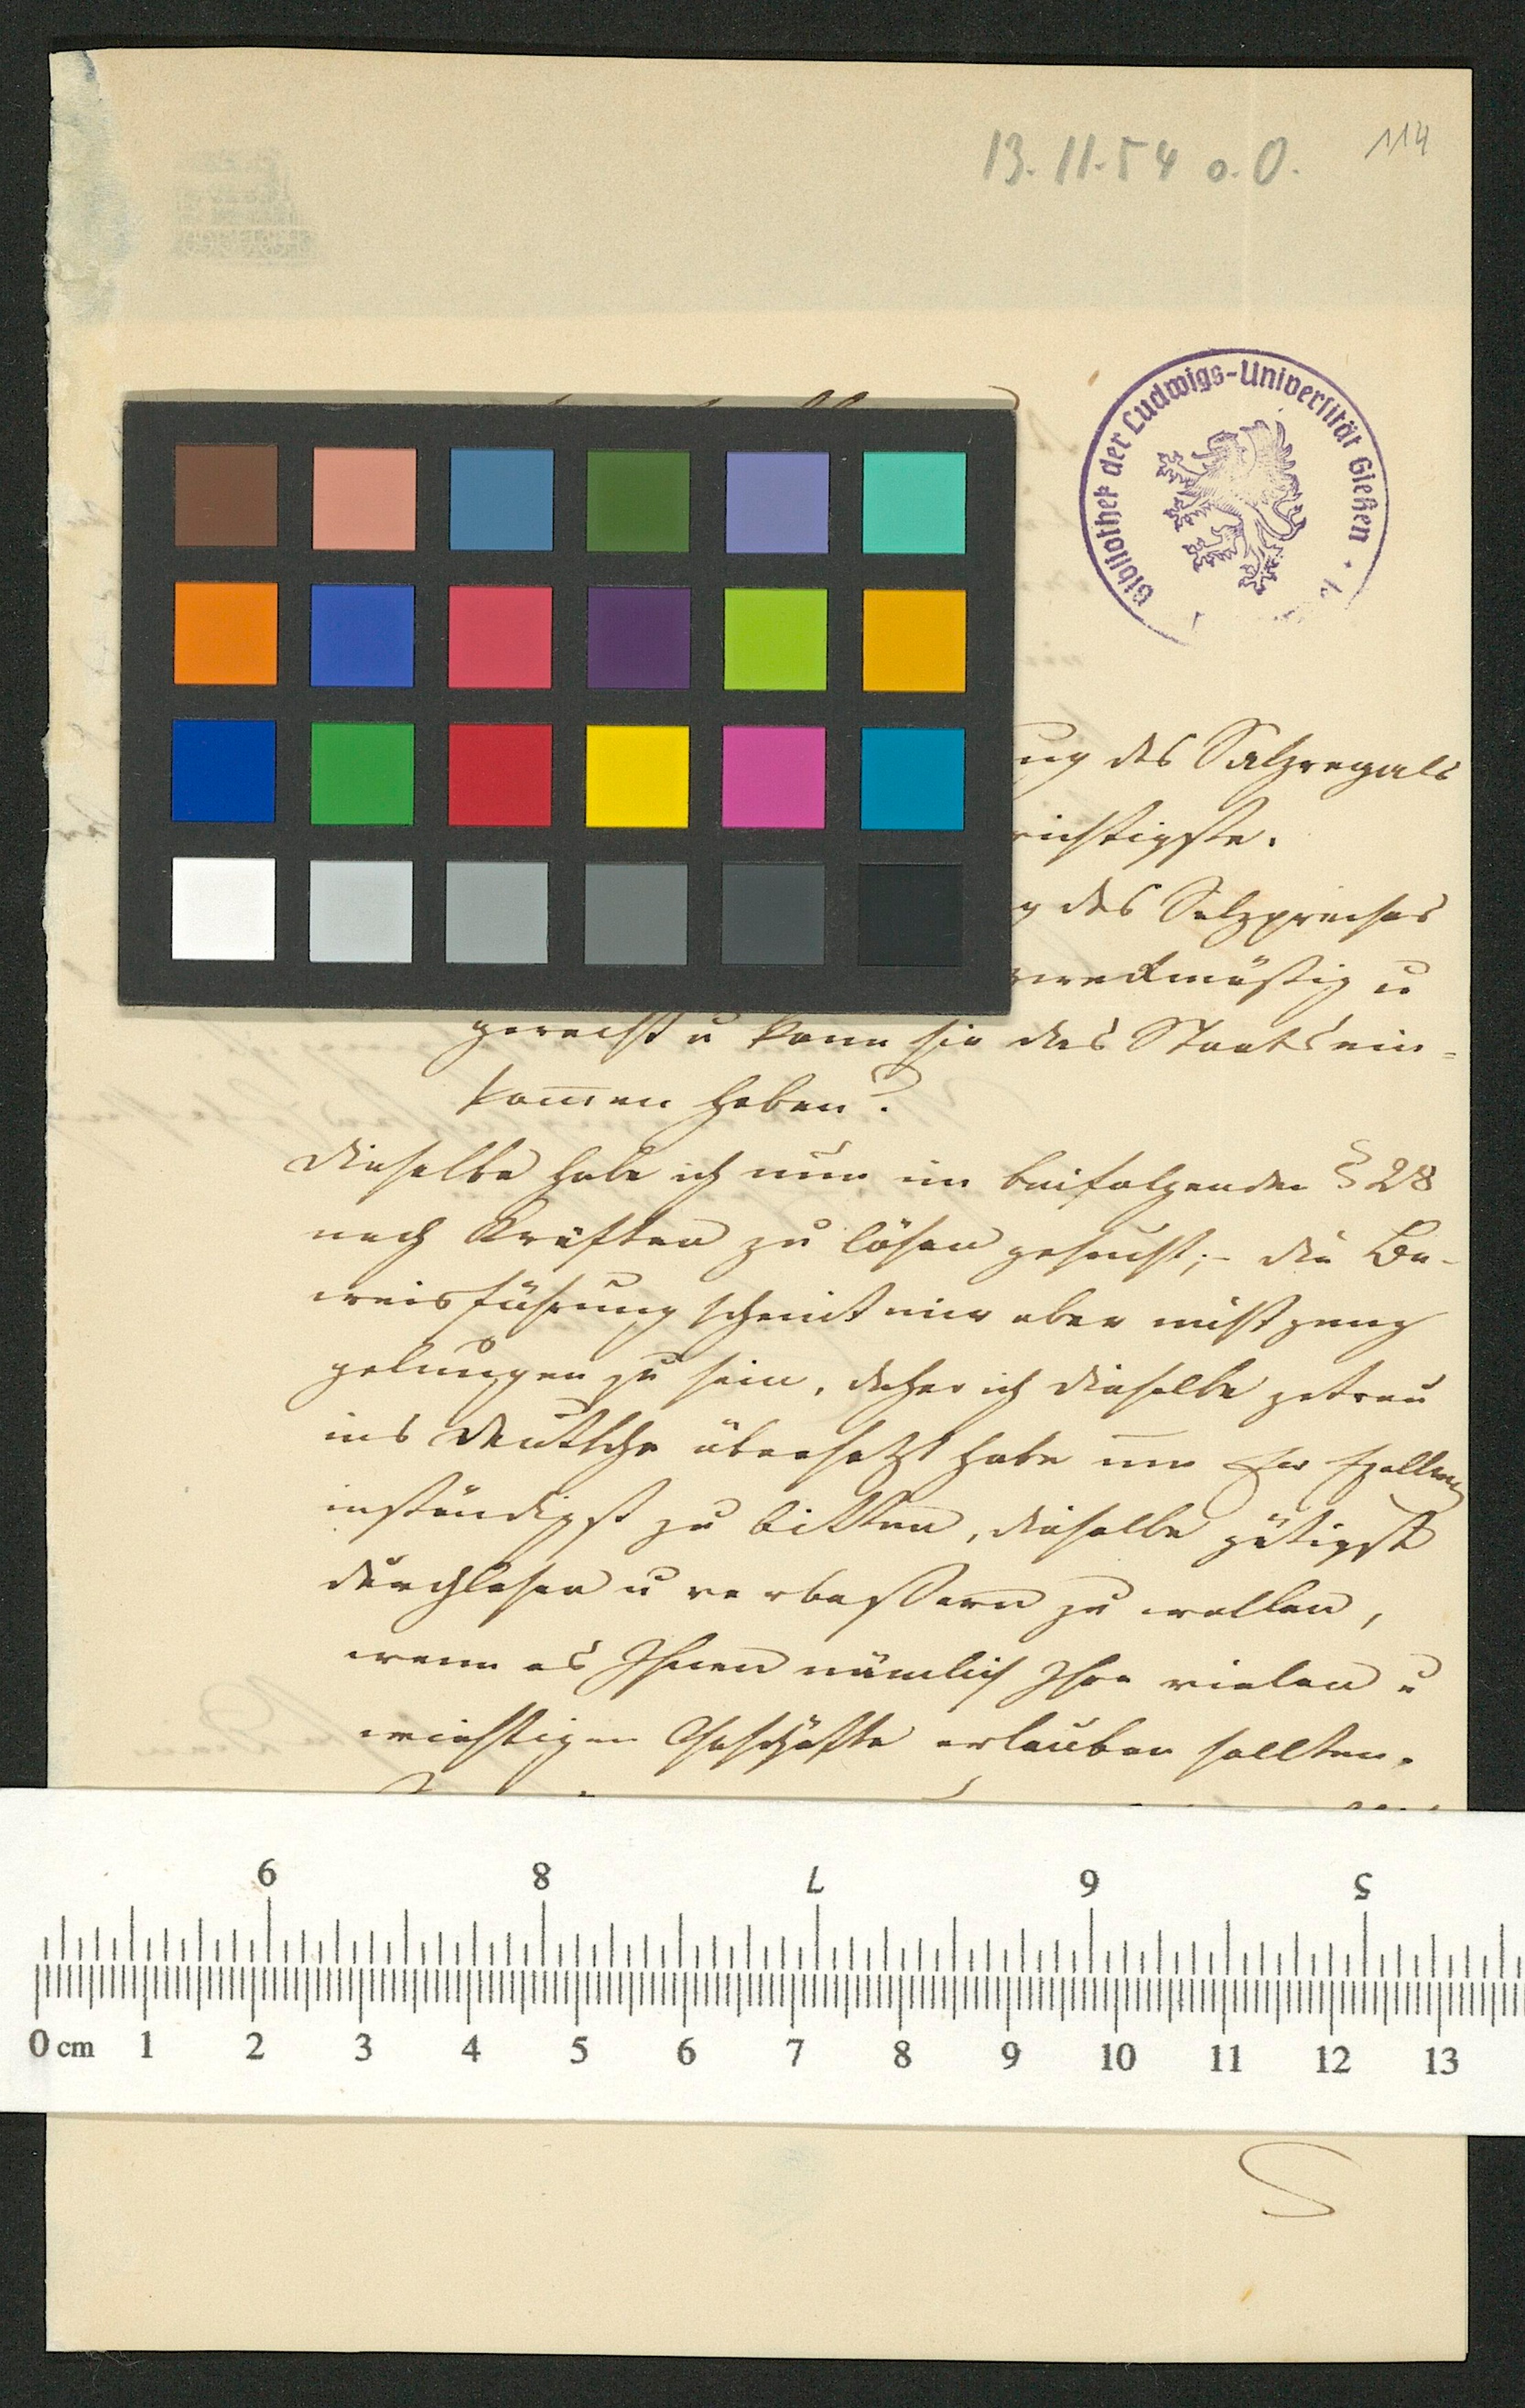 13.11.54 o. O.
114
Bibliothek der Ludwigs-Universität Gießen
ug des Salzregals
wichtigste.
g des Salzpreises
zweckmäßig u
gerecht u kann sie das Staatsein-
kom̄en heben?
Dieselbe habe ich nun im beifolgenden § 28
nach Kräften zu lösen gesucht; – die Be-
weisführung scheint mir aber nicht ganz
gelungen zu sein, daher ich dieselbe getreu
ins Deutsche übersetzt habe um Ew
inständigst zu bitten, dieselbe gütigst
durchlesen u verbessern zu wollen,
wenn es Ihnen nämlich Ihre vielen u
wichtigen Geschäfte erlauben sollten.
9 8 7 6 5
0 cm 1 2 3 4 5 6 7 8 9 10 11 12 13